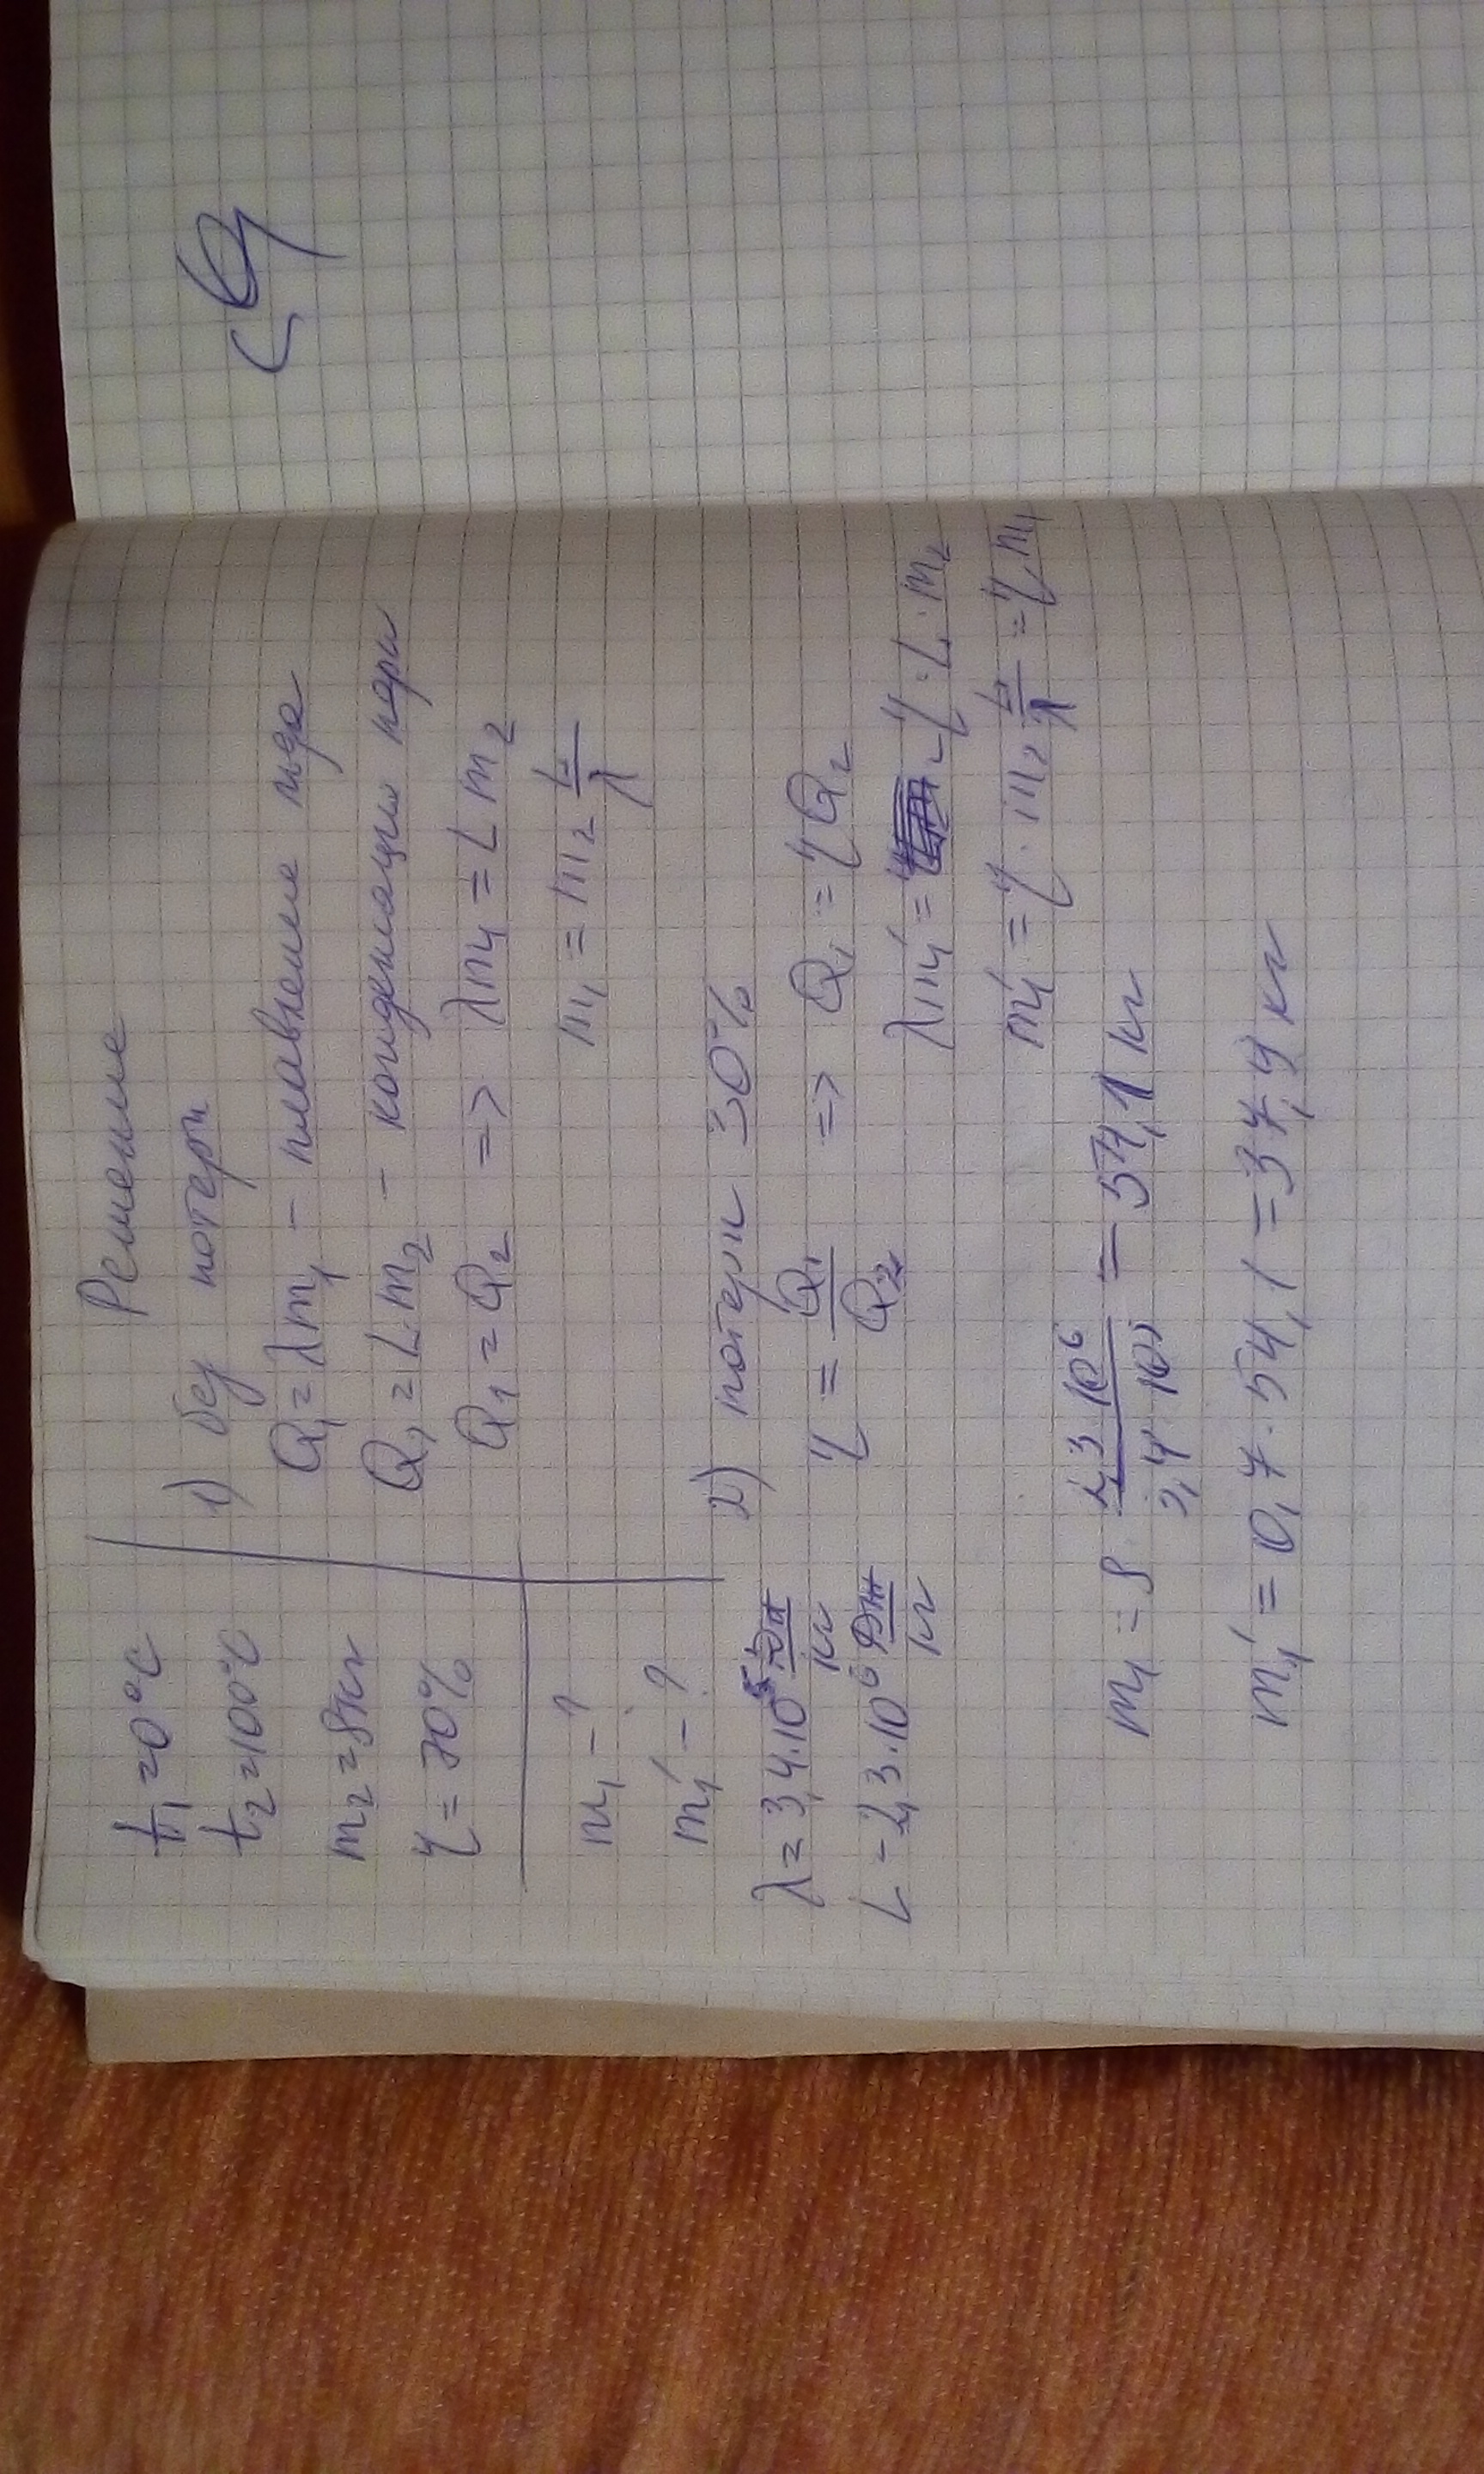 Решение
t₁=0°C
t₂=100°C
m₂=8кг
η=70%
m₁-?
m₁'-?
λ=3,4·10⁵ Дж/кг
L-2,3·10⁶ Дж/кг
1) без потерь
Q₁=λm₁ - плавление льда
Q₁=L·m₂ - конденсация пара
Q₁=Q₂ => λm₁=Lm₂
m₁=m₂ L/λ
2) потери 30%
η=Q₁/Q₂ => Q₁=ηQ₂
λm₁'=η·L·m₂
m₁'=η·m₂ L/λ=η m₁
m₁=8 2,3·10⁶/3,4·10⁵=54,1 кг
m₁'=0,7·54,1=37,9 кг